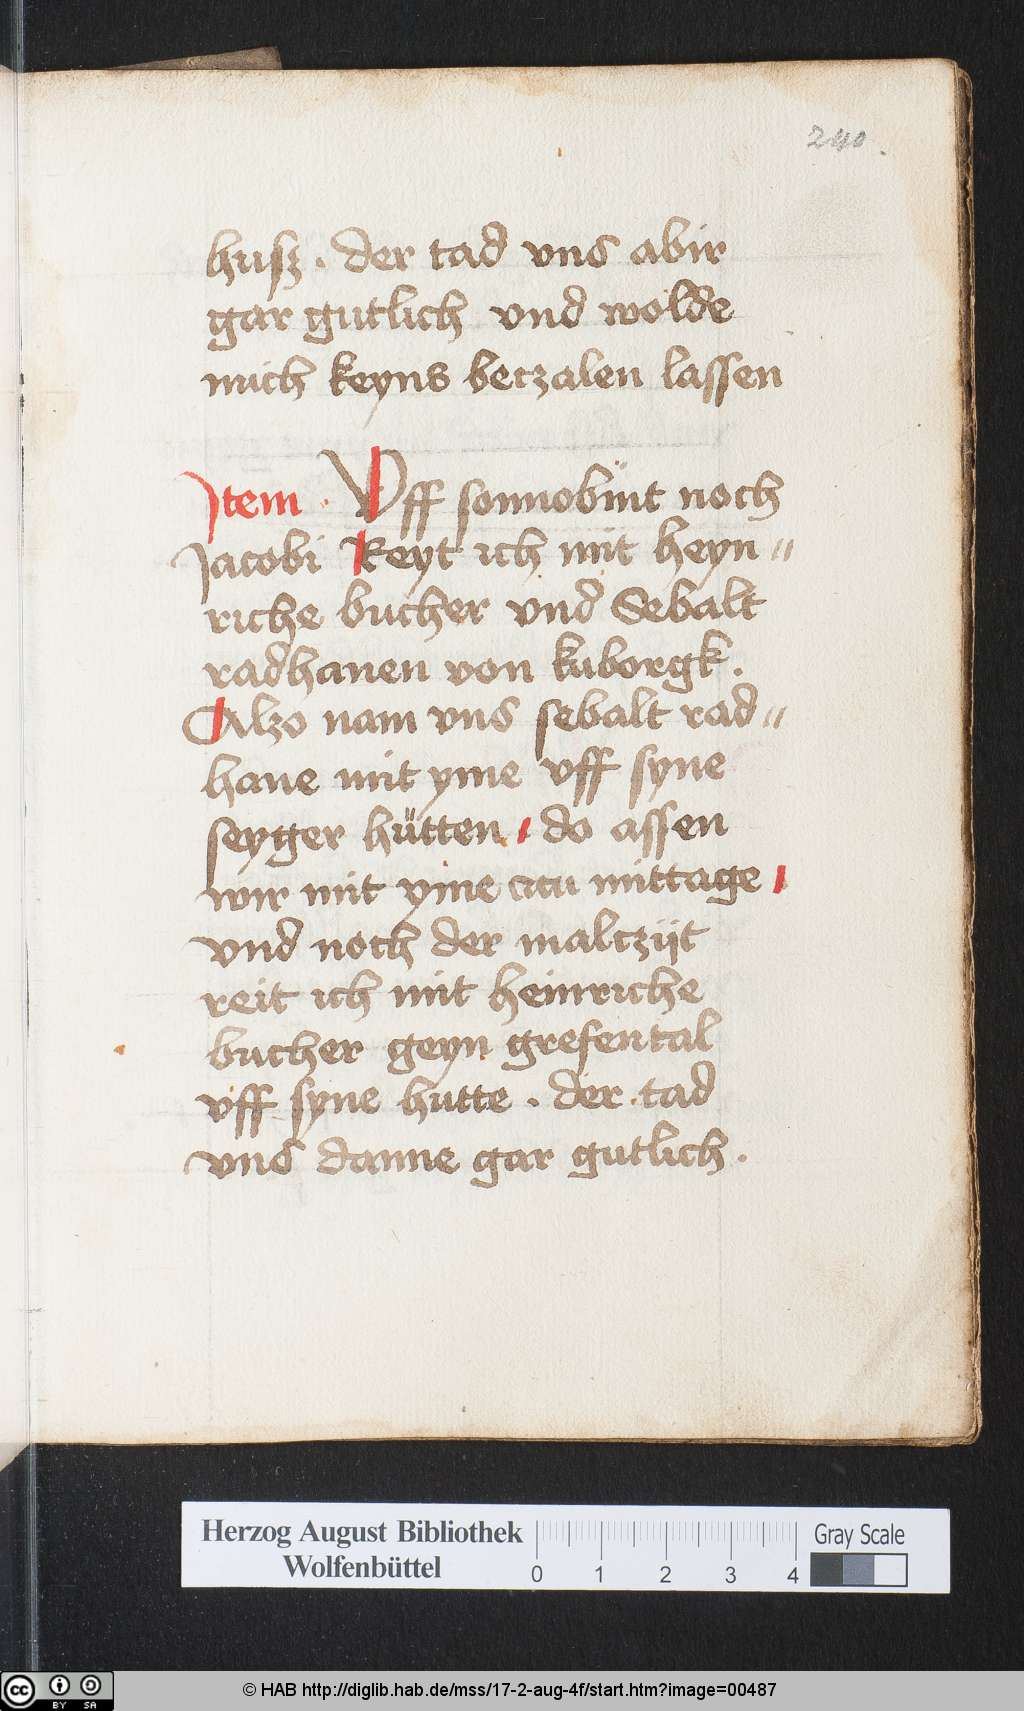 240.
husz . der tad vns abir
gar gutlich vnd wolde
mich keyns beczalen lassen
Item . Vff sonnobint noch
Jacobi Reyt ich mit heyn〃
riche bucher vnd Sebalt
radhanen von kuborgk .
Alzo nam vns sebalt rad〃
hane mit yme vff syne
seyger hütten , do assen
wir mit yme czu mittage ,
vnd noch der malczijt
reit ich mit heinriche
bucher geyn grefental
vff syne hutte . der tad
vns danne gar gutlich .
Herzog August Bibliothek
Wolfenbüttel
0 1 2 3 4
Gray Scale
cc BY SA
© HAB http://diglib.hab.de/mss/17-2-aug-4f/start.htm?image=00487